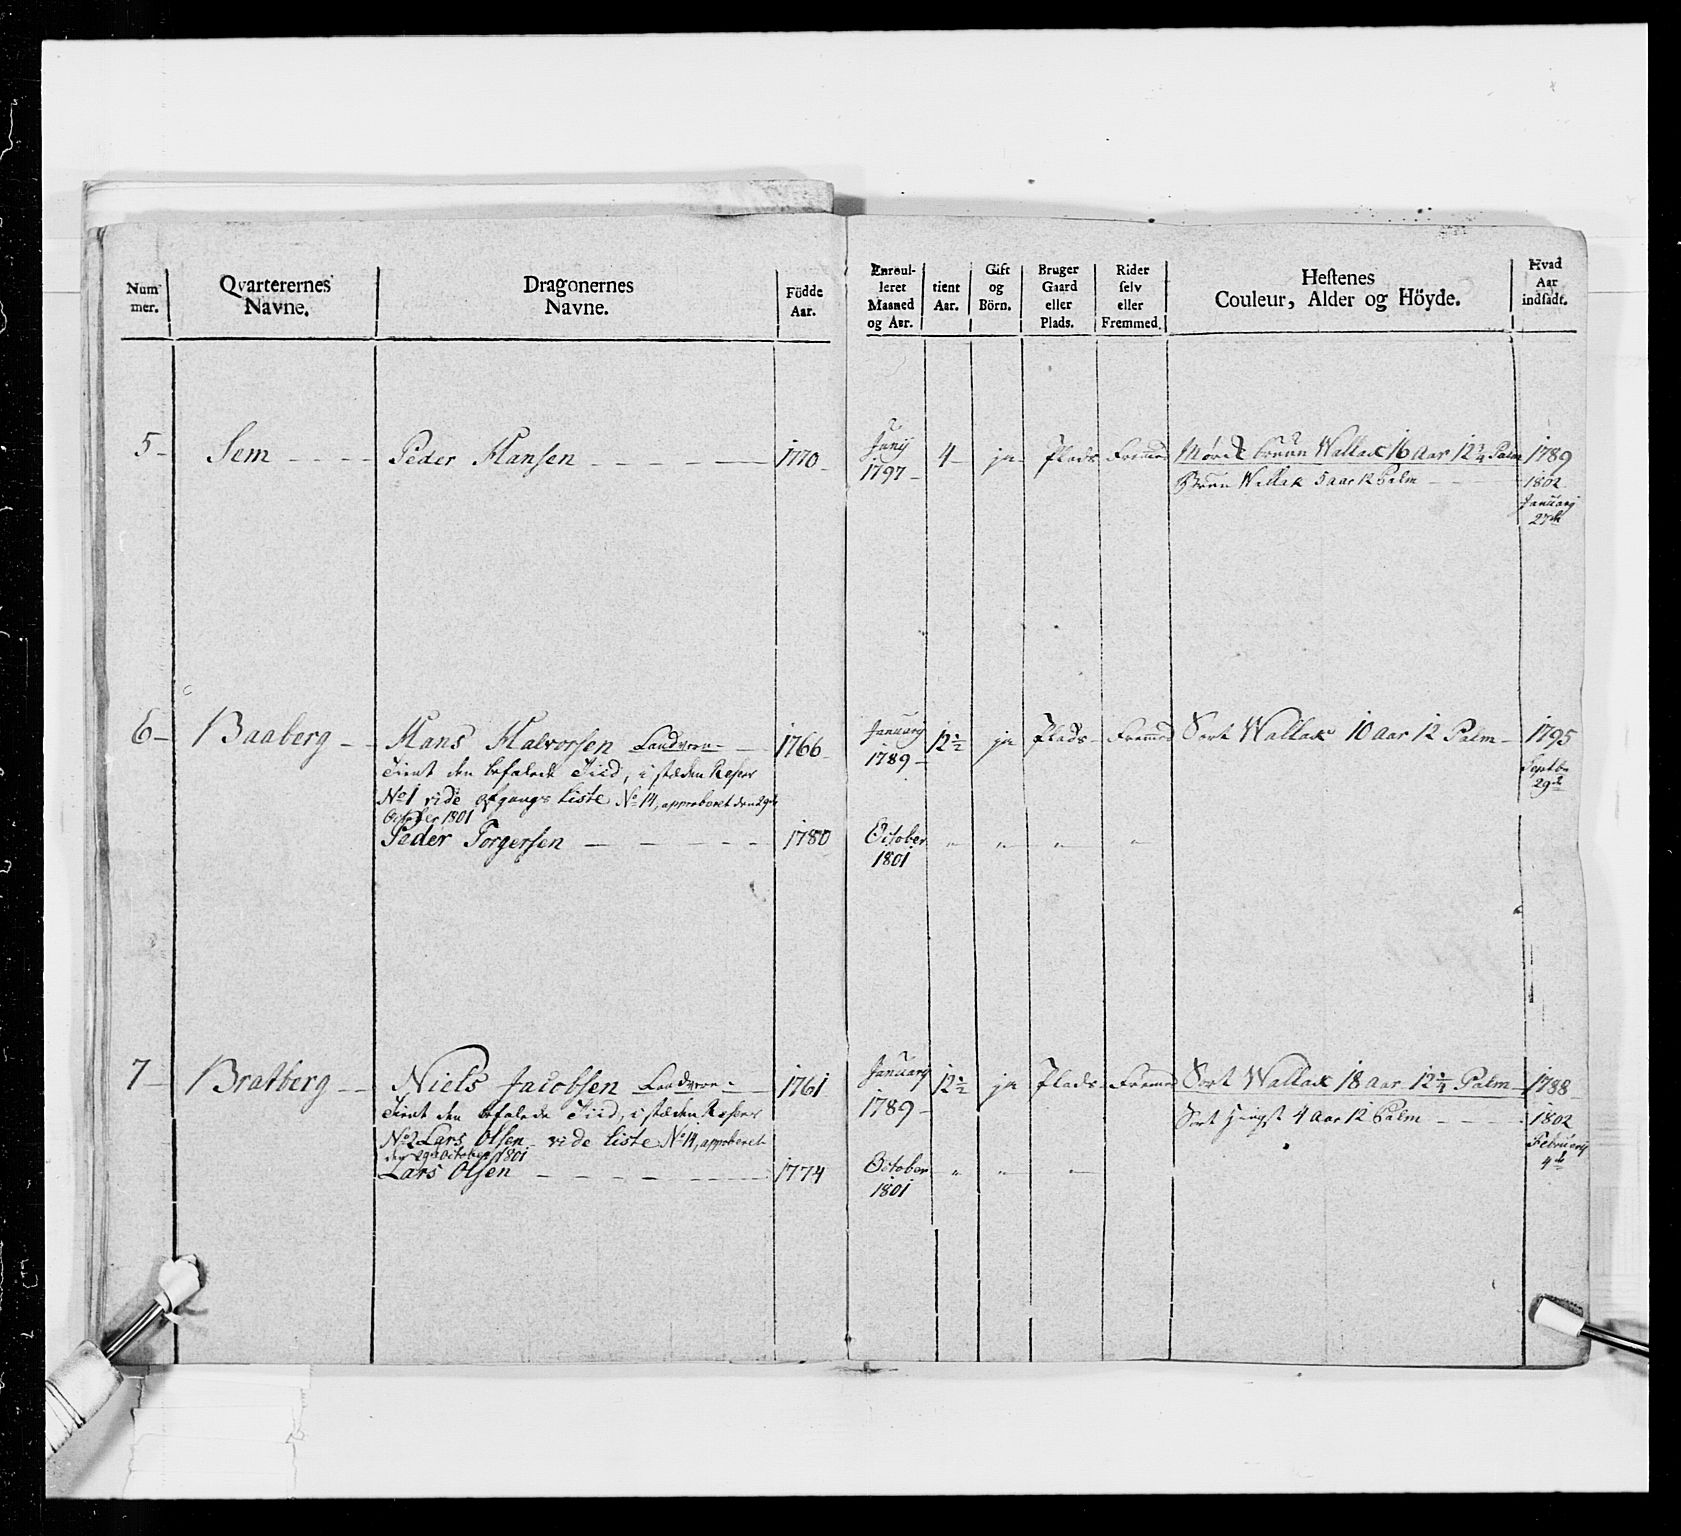 Num mer. | Qvarterernes Navne. | Dragonernes Navne. | Födde Aar. | Enroulleret Maaned og Aar. | tient Aar. | Gift og Börn. | Bruger Gaard eller Plads. | Rider selv eller Fremmed. | Hestenes Couleur, Alder og Höyde. | Hvad Aar indsadt.
5 - Sem - - - Peder Hansen - - - - 1770 - Junij 4 - ja - Plads Fremmed Mørk bruun Wallak 16 Aar 12 3/4 Palm 1789
1797 - Bruun Wallak 5 aar 12 Palm - - - 1802
Januarij
27de
6 - Baaberg - - Hans Halvorsen Landværn - 1766 - Januarij 12 1/2 ja Plads - Fremmed Sort Wallak 10 Aar 12 Palm - 1795
1789 -
Tient den befalede Tiid, i stæden Reserv Septbr
No 1 vide Afgangs Liste No 14, approberet den 29de 29de
October 1801
Peder Torgersen - - - - - 1780 October " " " "
1801
7 - Bratberg - - Niels Jacobsen Landværn - 1761 Januarij 12 1/2 ja Plads Fremmed Sort Wallak 18 Aar 12 1/4 Palm - 1788
1789 -
Tient den befalede Tiid, i stæden Reserv Sort Hingst 4 Aar 12 Palm - - - 1802
No 2 Lars Olsen - vide Liste No 14, approberet Februarij
den 29de October 1801 4de
Lars Olsen - - - - - 1774 October " " "
1801